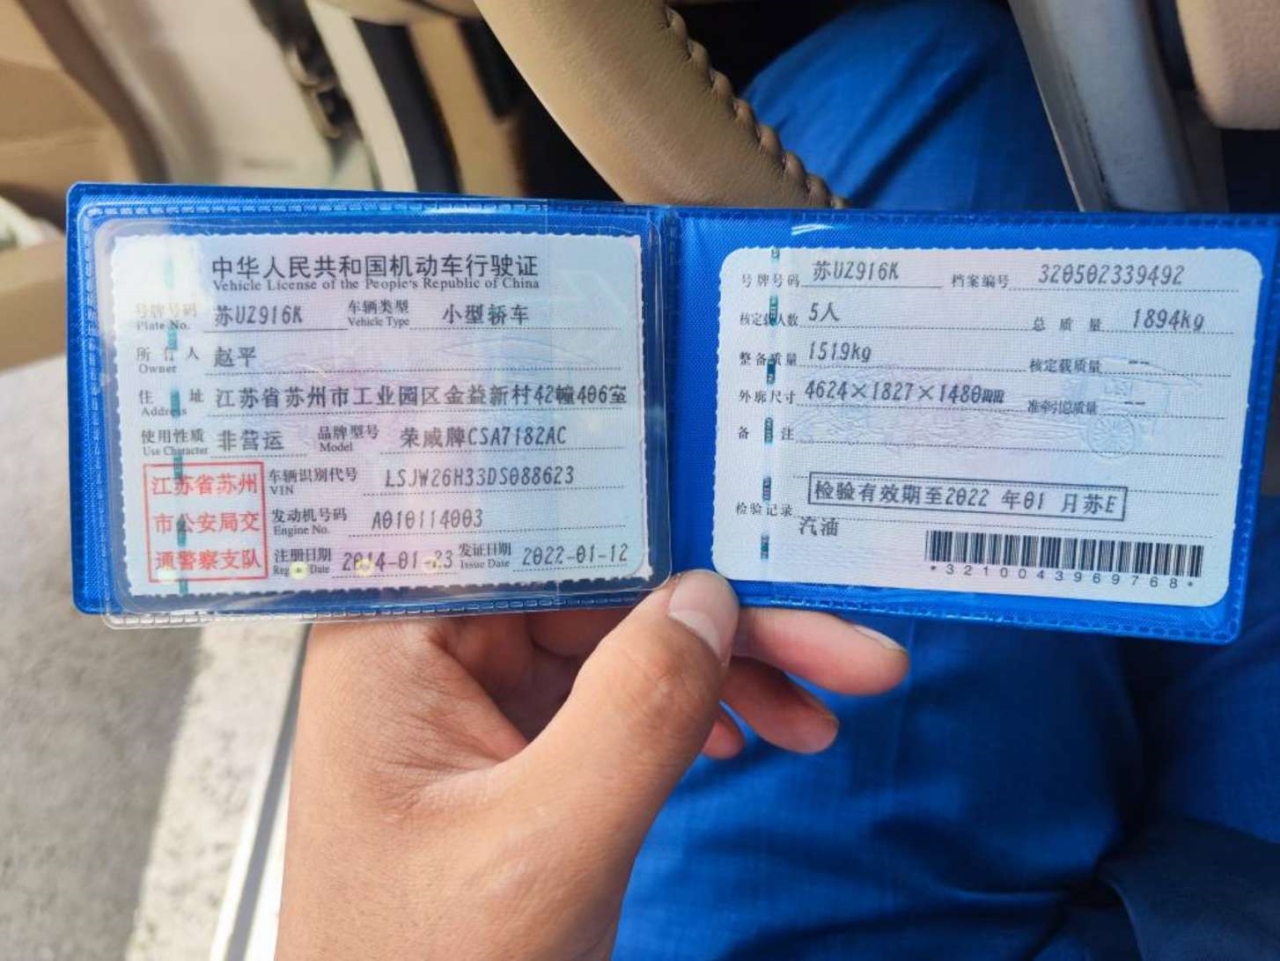 中华人民共和国机动车行驶证
Vehicle License of the People's Republic of China
号牌号码 苏UZ916K 车辆类型 小型轿车
Plate No. Vehicle Type
所有人 赵平
Owner
住址 江苏省苏州市工业园区金益新村42幢406室
Address
使用性质 非营运 品牌型号 荣威牌CSA7182AC
Use Character Model
江苏省苏州
市公安局交
通警察支队
车辆识别代号 LSJW26H33DS088623
VIN
发动机号码 A010114003
Engine No.
注册日期 2014-01-23 发证日期 2022-01-12
Date Issue Date
号牌号码 苏UZ916K 档案编号 320502339492
核定载人数 5人 总质量 1894kg
整备质量 1519kg 核定载质量 --
外廓尺寸 4624×1827×1480mm 准牵引总质量 --
备注
检验有效期至2022 年01 月苏E
检验记录
汽油
*3210043969768*